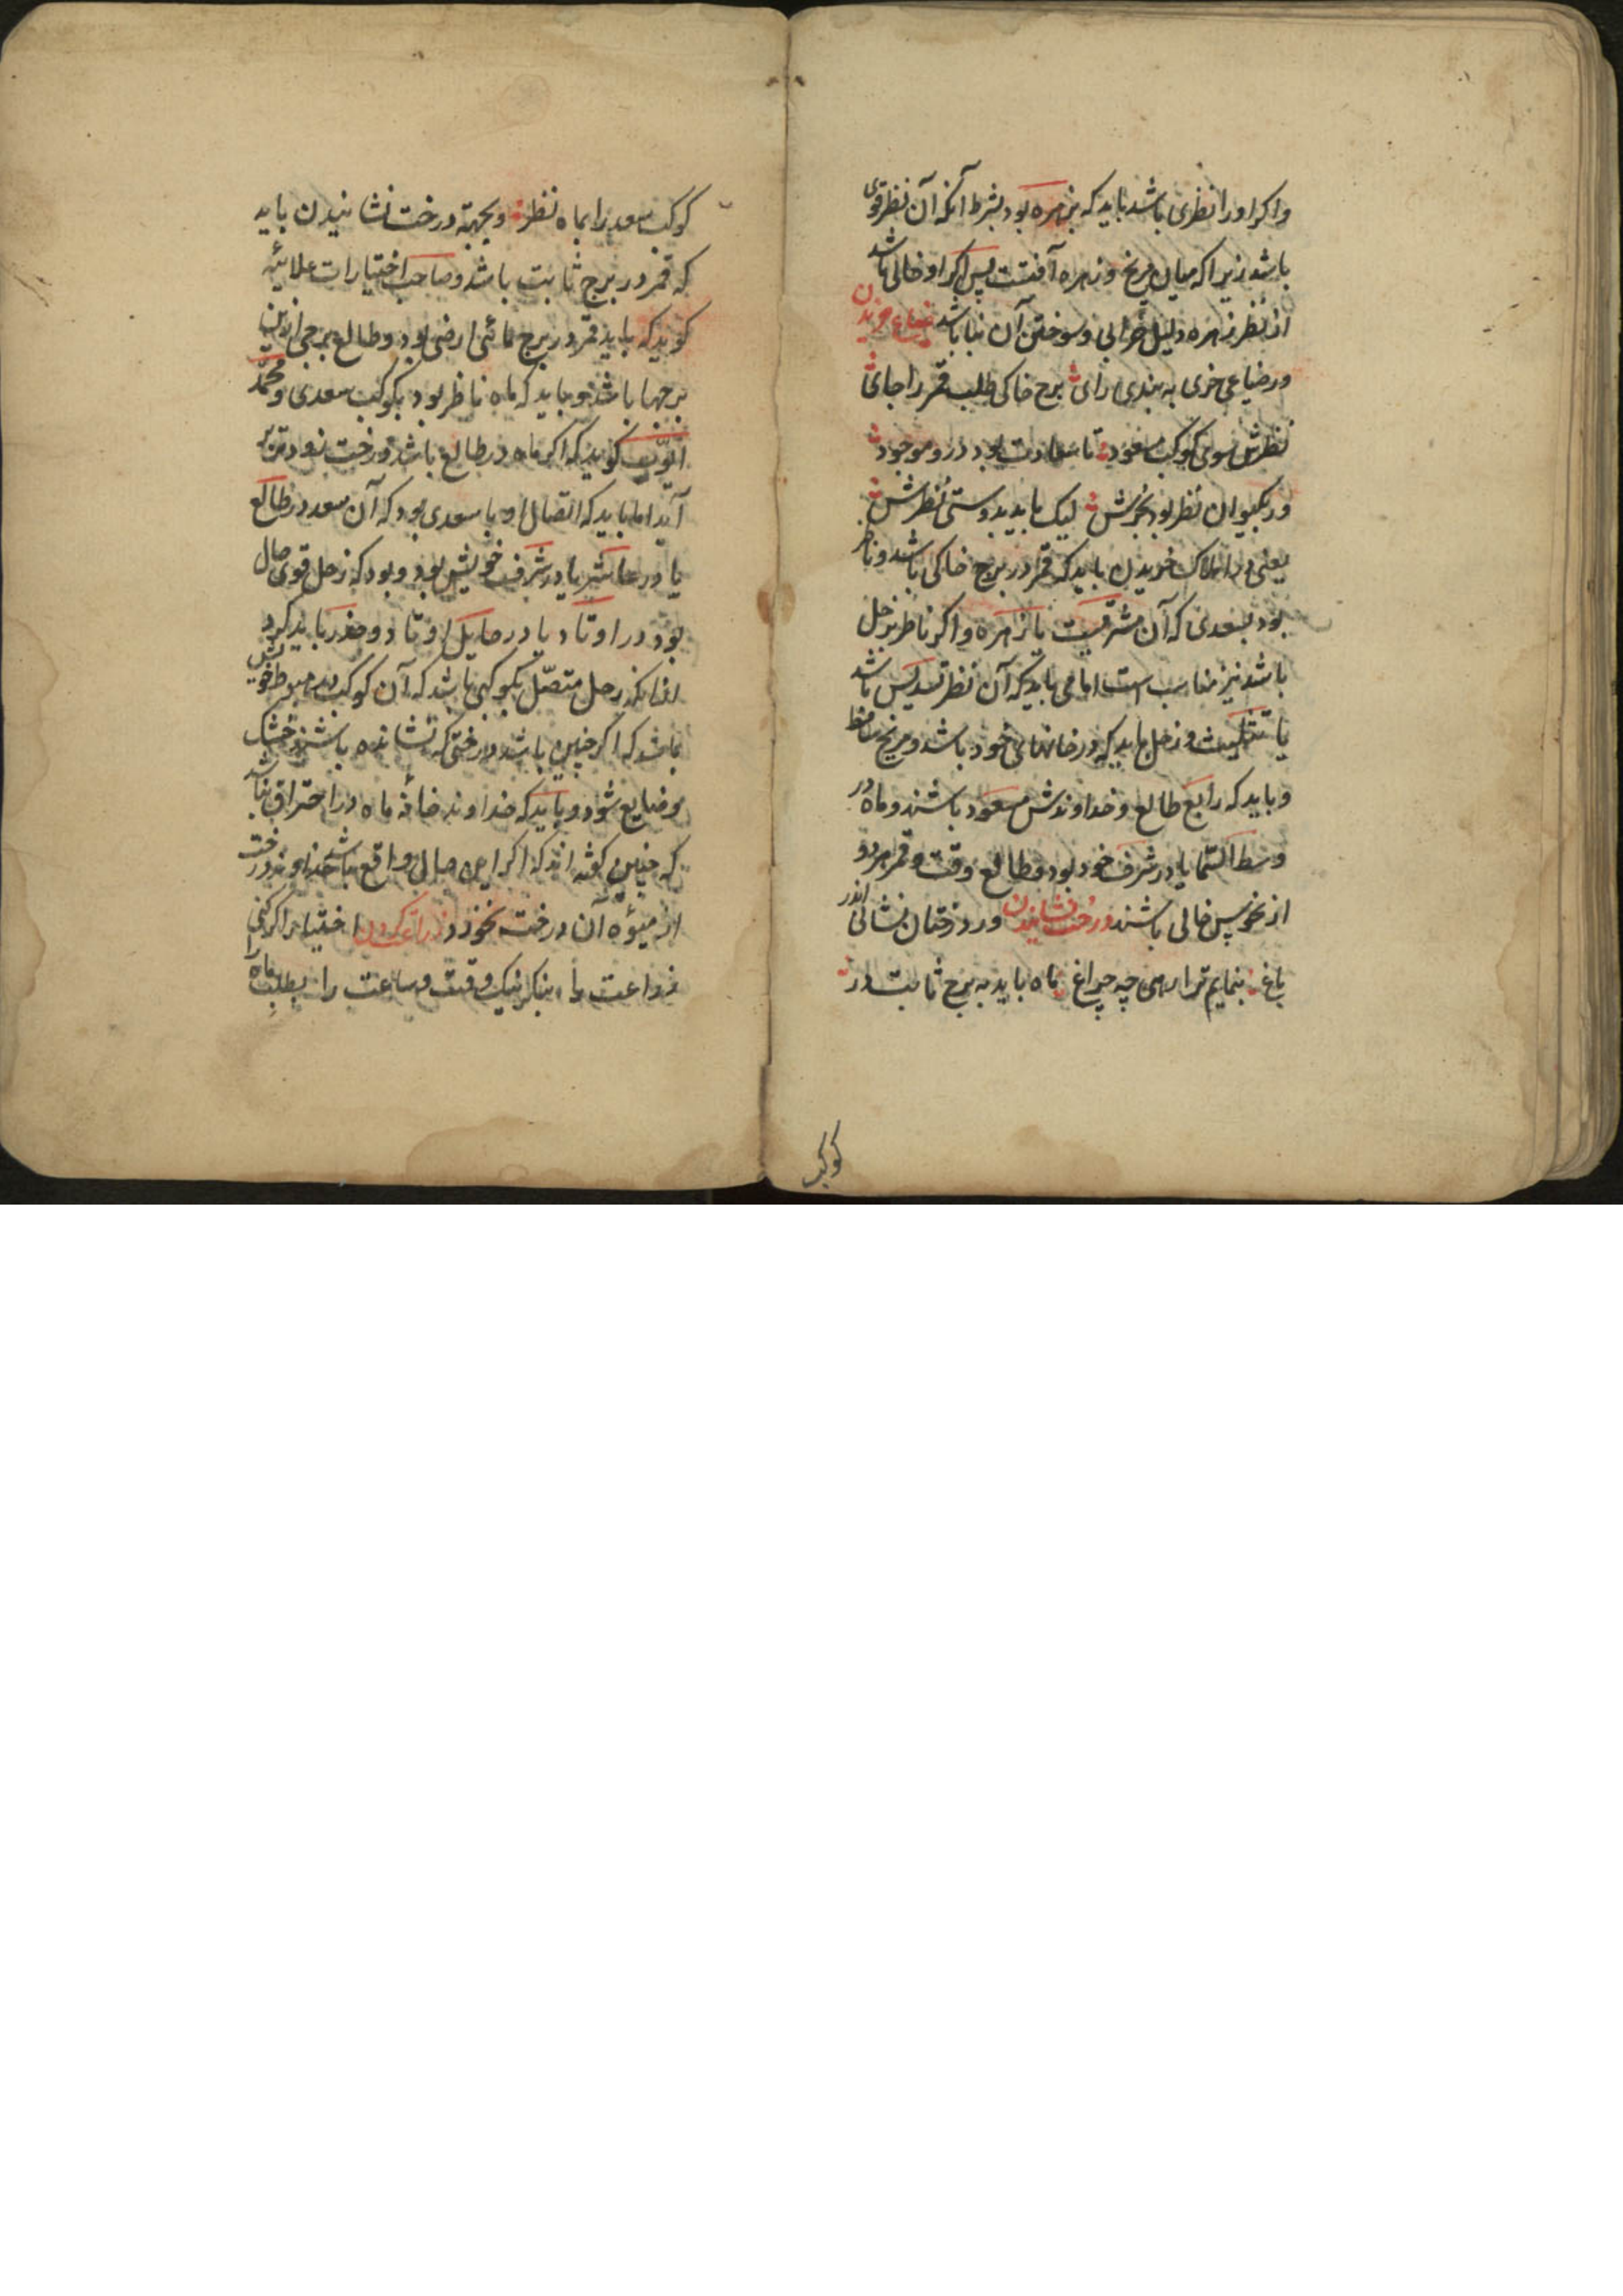 واکر اورا نظری باشد باید که بزهره بود بشرط آنکه آن نظر قوی
باشد زیرا که میان مریخ و زهره آفتست پس اکر او خالی باشد
از نظر زهره دلیل خرابی و سوختن آن بنا باشد ضیاع خریدن
ور ضیاعی خری به بندی رای برج خاکی طلب قمر را جای
نظرش سوی کوکب مسعود تا سعادت بود درو موجود
ور بکیوان نظر بود بخرش لیک باید بدوستی نظرش
یعنی در املاک خریدن باید که قمر در برج خاکی باشد و ناظر
بود بسعدی که آن مشتریست یا زهره و اکر ناظر بزحل
باشد نیز مناسب است اما می باید که آن نظر تسدیس باشد
یا تثلیث و زحل باید که در خانهای خود باشد و مریخ ساقط
و باید که رابع طالع و خداوندش مسعود باشند و ماه در
وسط السّما یا در شرف خود بود و طالع وقت و قمر هر دو
از نحوس خالی باشند درخت نشاندن ور درختان نشانی اندر
باغ بنمایم ترا رهی چه چراغ ماه باید به برج ثابت در
کوکب
کوکب سعد را بماه نظر و بجهة درخت نشانیدن باید
که قمر در برج ثابت باشد و صاحب اختیارات علائیه
کوید که باید قمر در برج مائی ارضی بود و طالع برجی ازین
برجها باشد و باید که ماه ناظر بود بکوکب سعدی و محمّد
ایوّب کوید که اکر ماه در طالع باشد درخت زودتر بر
آید اما باید که اتصال او با سعدی بود که آن سعد در طالع
یا در عاشر یا در شرف خویش بود و بود که زحل قوی حال
بود در اوتاد یا در مایل اوتاد و حذر باید کرد
از آنکه زحل متصّل بکوکبی باشد که آن کوکب در هبوط خویش
باشد که اکر چنین باشد درختی که نشانده باشند خشک
و ضایع شود و باید که خداوند خانهٔ ماه در احتراق نباشد
که چنین کفته اند که اکر این حال واقع باشد خداوند درخت
از میوهٔ آن درخت نخورد زراعت کردن اختیار اکر کنی
زراعت را بنکر نیک وقت و ساعت را بطلب ماه را